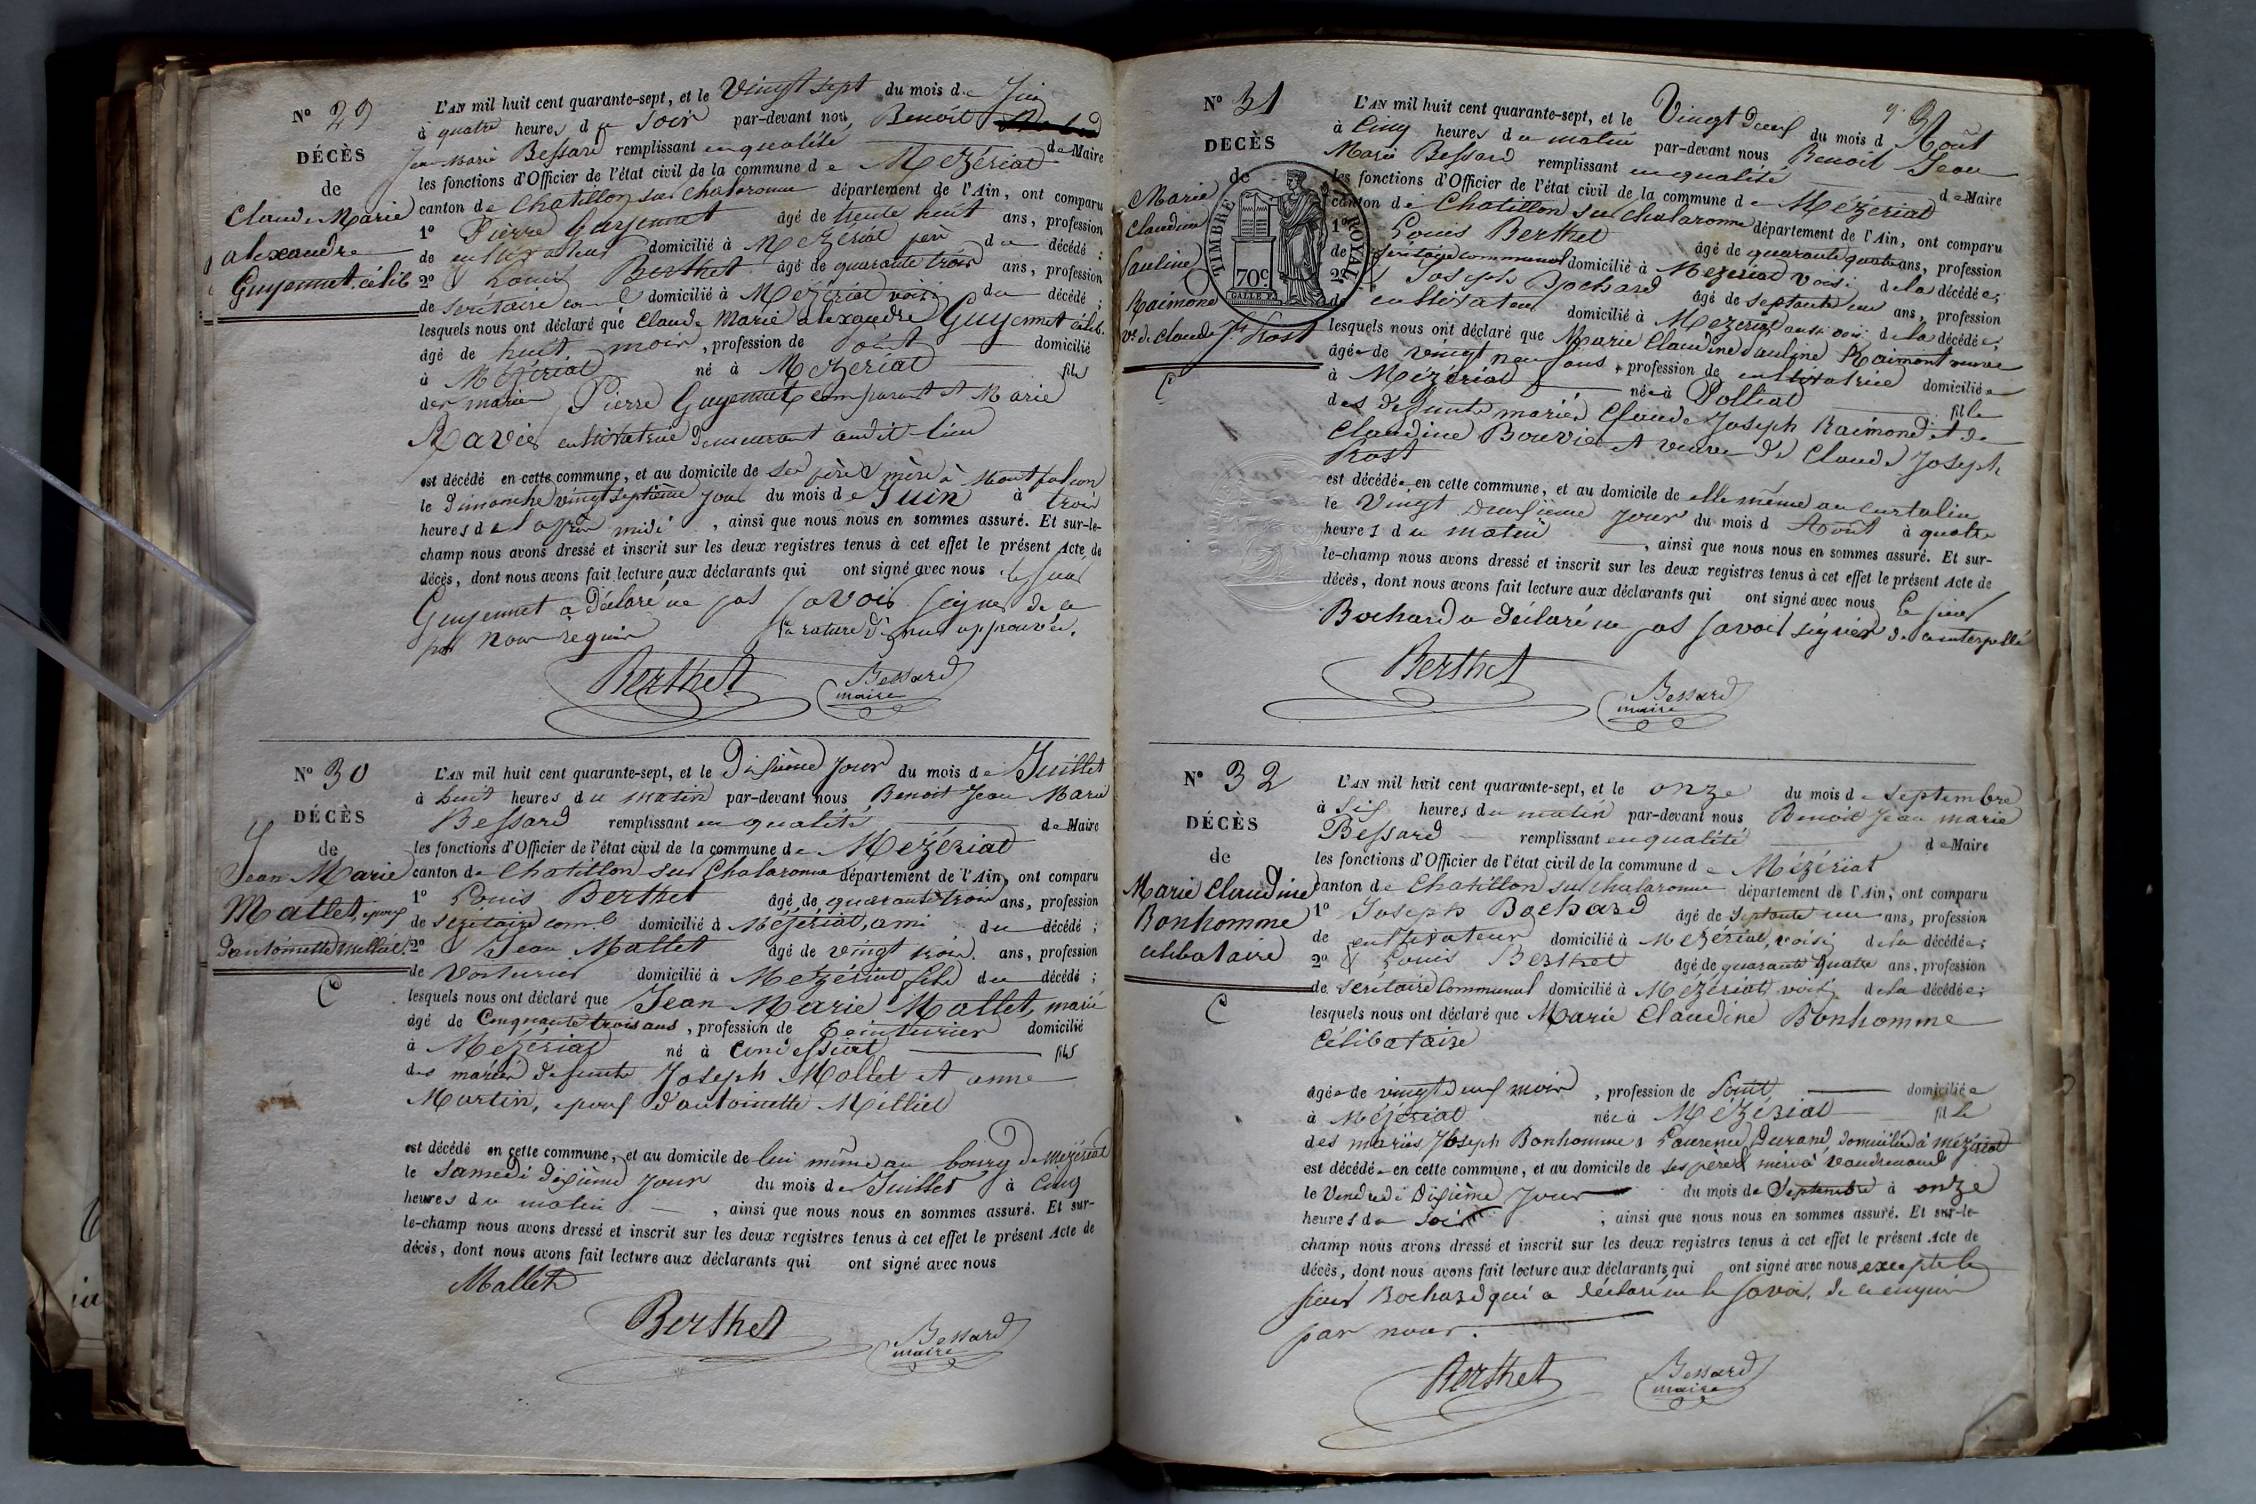 N° 29
DÉCÈS
de
Claude Marie
alexandre
Guyennet, célib
L'AN mil huit cent quarante-sept, et le Vingt sept du mois de Juin
à quatre heures du Soir par-devant nous Benoit
Jean Marie Bessard remplissant en qualité de Maire
les fonctions d'Officier de l'état civil de la commune de Mézériat
canton de Chatillon sur Chalaronne département de l'Ain, ont comparu
1° Pierre Guyennet âgé de trente huit ans, profession
de cultivateur domicilié à Mézériat père du décédé ;
2° Louis Berthet âgé de quarante trois ans, profession
de secrétaire com.l domicilié à Mézériat voisin du décédé ;
lesquels nous ont déclaré que Claude Marie alexandre Guyennet célib.
âgé de huit mois, profession de domicilié
à Mézériat né à Mézériat fils
des mariés Pierre Guyennet comparant et Marie
Ravier cultivatrice demeurant audit lieu
est décédé en cette commune, et au domicile de ses père & mère à Montfalcon
le Dimanche vingt septième jour du mois de Juin à trois
heures de après midi, ainsi que nous nous en sommes assuré. Et sur-le-
champ nous avons dressé et inscrit sur les deux registres tenus à cet effet le présent Acte de
décès, dont nous avons fait lecture aux déclarants qui ont signé avec nous, le sieur
Guyennet a déclaré ne pas savoir signer de ce
par nous requis la rature approuvée.
Berthet Bessard
maire
N° 30
DÉCÈS
de
Jean Marie
Mallet, époux
d'antoinette Milliet.
C
L'AN mil huit cent quarante-sept, et le Dixième jour du mois de Juillet
à huit heures du matin par-devant nous Benoit Jean Marie
Bessard remplissant en qualité de Maire
les fonctions d'Officier de l'état civil de la commune de Mézériat
canton de Chatillon sur Chalaronne département de l'Ain, ont comparu
1° Louis Berthet âgé de quarante trois ans, profession
de secrétaire com.l domicilié à Mézériat, ami du décédé ;
2° Jean Mallet âgé de vingt trois ans, profession
de voiturier domicilié à Mézériat fils du décédé ;
lesquels nous ont déclaré que Jean Marie Mallet, marié
âgé de Cinquante trois ans, profession de teinturier domicilié
à Mézériat né à Condeissiat fils
des mariés défunts Joseph Mallet et anne
Martin, époux d'antoinette Milliet
est décédé en cette commune, et au domicile de lui même au bourg de Mézériat
le samedi dixième jour du mois de Juillet à Cinq
heures du matin, ainsi que nous nous en sommes assuré. Et sur-
le-champ nous avons dressé et inscrit sur les deux registres tenus à cet effet le présent Acte de
décès, dont nous avons fait lecture aux déclarants qui ont signé avec nous
Mallet
Berthet Bessard
maire
N° 31
DÉCÈS
de
Marie
Claudine
Pauline
Raimond
Ve. de Claude Jh. Prost
C
TIMBRE ROYAL
70c
L'AN mil huit cent quarante-sept, et le Vingt deux du mois d Août
à Cinq heures du matin par-devant nous Benoit Jean
Marie Bessard remplissant en qualité de Maire
les fonctions d'Officier de l'état civil de la commune de Mézériat
canton de Chatillon sur Chalaronne département de l'Ain, ont comparu
1° Louis Berthet âgé de quarante quatre ans, profession
de secrétaire communal domicilié à Mézériat voisin de la décédée ;
2° Joseph Bochard âgé de septante un ans, profession
de cultivateur domicilié à Mézériat aussi voisin de la décédée ;
lesquels nous ont déclaré que Marie Claudine Pauline Raimont veuve
âgée de vingt neuf ans, profession de cultivatrice domiciliée
à Mézériat née à Polliat fille
des défunts mariés Claude Joseph Raimond et de
Claudine Bouvier et veuve de Claude Joseph
Prost
est décédée en cette commune, et au domicile de elle même au curtalin
le Vingt deuxième jour du mois d Août à quatre
heures du matin, ainsi que nous nous en sommes assuré. Et sur-
le-champ nous avons dressé et inscrit sur les deux registres tenus à cet effet le présent Acte de
décès, dont nous avons fait lecture aux déclarants qui ont signé avec nous Le sieur
Bochard a déclaré ne pas savoir signer de ce interpellé
Berthet Bessard
maire
N° 32
DÉCÈS
de
Marie Claudine
Bonhomme
célibataire
C
L'AN mil huit cent quarante-sept, et le onze du mois de septembre
à Six heures du matin par-devant nous Benoit Jean marie
Bessard remplissant en qualité de Maire
les fonctions d'Officier de l'état civil de la commune de Mézériat
canton de Chatillon sur Chalaronne département de l'Ain, ont comparu
1° Joseph Bochard âgé de septante un ans, profession
de cultivateur domicilié à Mézériat, voisin de la décédée ;
2° Louis Berthet âgé de quarante quatre ans, profession
de secrétaire Communal domicilié à Mézériat voisin de la décédée ;
lesquels nous ont déclaré que Marie Claudine Bonhomme
Célibataire
âgée de vingt deux mois, profession de domiciliée
à Mézériat née à Mézériat fille
des mariés Joseph Bonhomme & Laurence Durand, domiciliés à mézériat
est décédée en cette commune, et au domicile de ses père & mère à Vaudrenand
le Vendredi Dixième jour du mois de Septembre à onze
heures du soir ; ainsi que nous nous en sommes assuré. Et sur-le-
champ nous avons dressé et inscrit sur les deux registres tenus à cet effet le présent Acte de
décès, dont nous avons fait lecture aux déclarants qui ont signé avec nous excepté le
sieur Bochard qui a déclaré ne le savoir, de ce enquis
par nous.
Berthet Bessard
maire